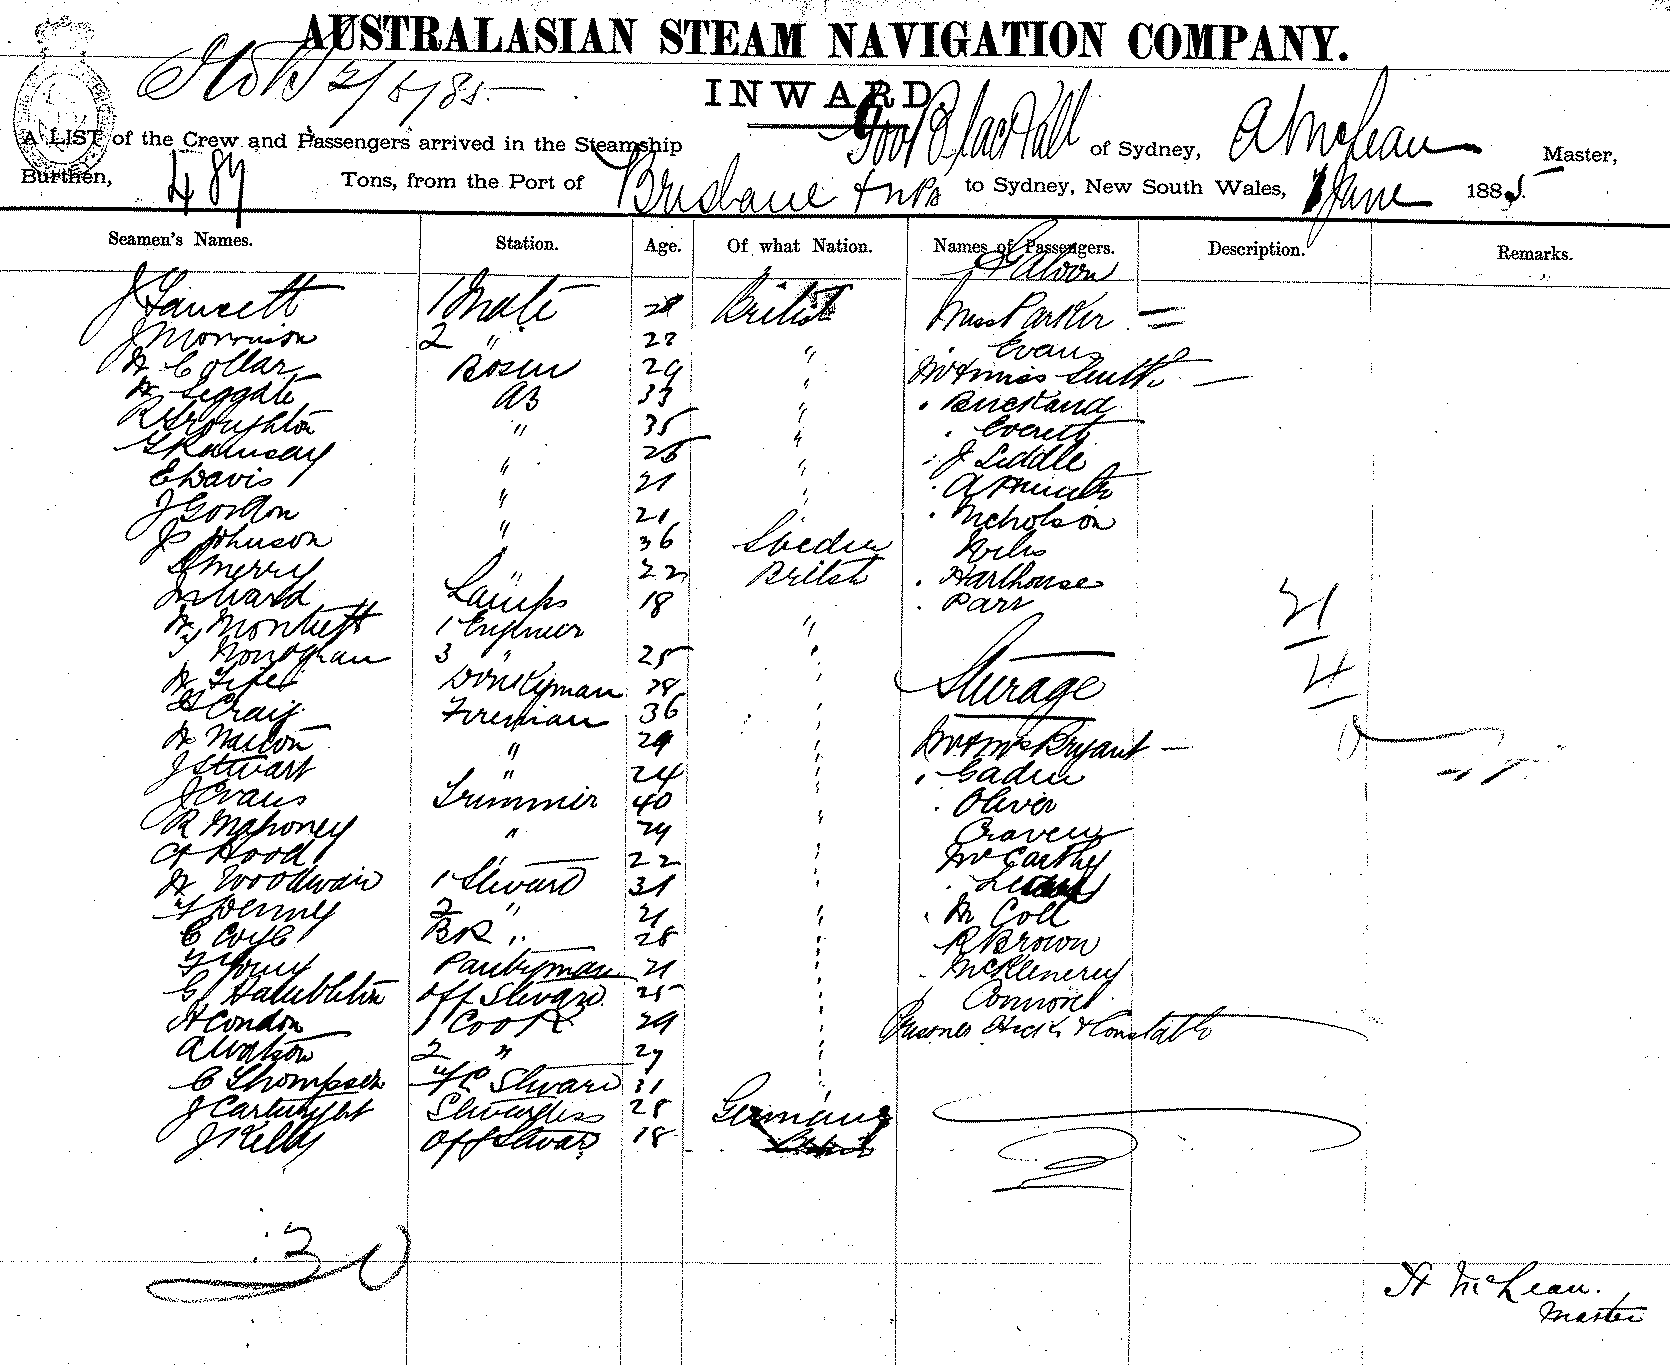 AUSTRALASIAN STEAM NAVIGATION COMPANY.
2/6/85
INWARD
A LIST of the Crew and Passengers arrived in the Steamship of Sydney, A McLean Master,
Burthen, 487 Tons, from the Port of Brisbane to Sydney, New South Wales, 1 June 1885.
Seamen's Names. Station. Age. Of what Nation. Names of Passengers. Description. Remarks.
Saloon
J Fausett 1 Mate 28 British Miss Parker =
J Morrison 2 " 22 " Evans
W Collar Bosun 29 " Mr & Miss
W Leggate AB 33 " Buckland
R Stroughton " 35 " Everett
G Ramsay 26 " J Liddle
E Davis " 21 "
J Gordon " 21 " Nicholson
J Johnson " 36 Sweden
Merry " 22 British Harthouse
Ward Lamps 18 Parr
1 Engineer " 21
Monoghan 3 " 25 "
Donkyman 38 " Steerage 4
Craig Fireman 36 "
W " 29 " Mr & Mrs Bryant —
J Stewart " 24 "
J Evans Trimmer 40 " Oliver
R Mahoney " 29 " Craven
A Hood " 22 " McCarthy
W Woodward 1 Steward 31 "
Penney 2 " 21 " Coll
BR " 28 " R Brown
Pantryman 21 "
G Hambleton Off Steward 25 " Connors
A Condon 1 Cook 29 " Prisoner Hick & Constable
A Watson 2 " 27 "
C Thompson F/C Steward 31 "
J Cartwright Stewardess 28 Germany
J Kelly Off Steward 18
30
A McLean.
Master